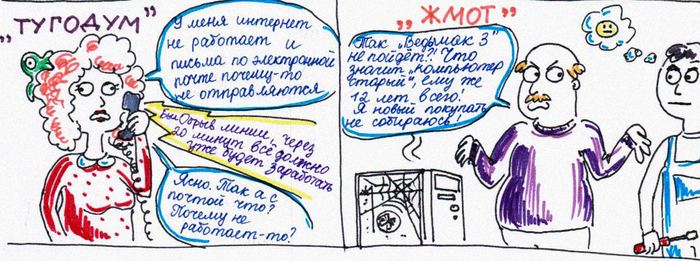 „ТУГОДУМ"
У меня интернет
не работает и
письма по электронной
почте почему-то
не отправляются
Был обрыв линии, через
20 минут всё должно
уже будет заработать
Ясно. Так а с
почтой что?
Почему не
работает-то?
„ЖМОТ"
Так „Ведьмак 3"
не пойдёт?! Что
значит „компьютер
старый", ему же
12 лет всего!
Я новый покупать
не собираюсь!